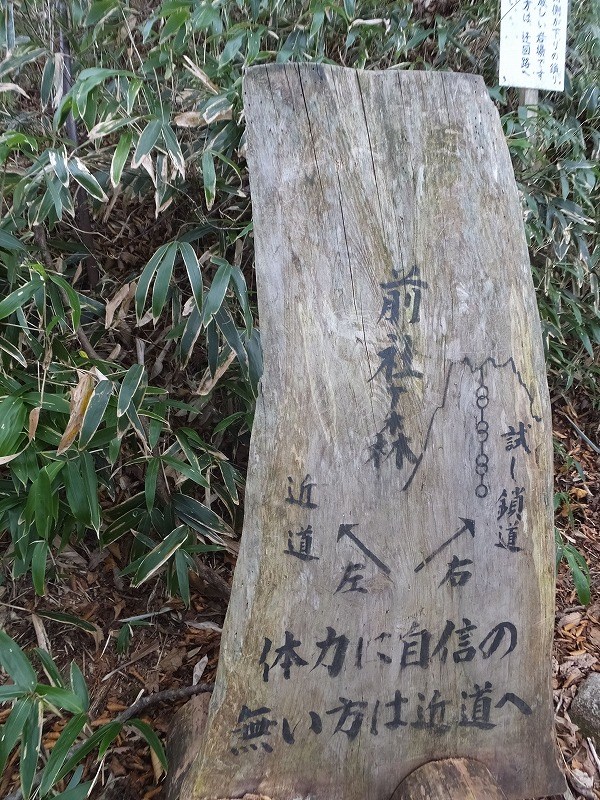 側が下りの鎖
しい岩場です
方は、迂回路へ
前社ヶ森
試し鎖道
近道
左
右
体力に自信の
無い方は近道へ